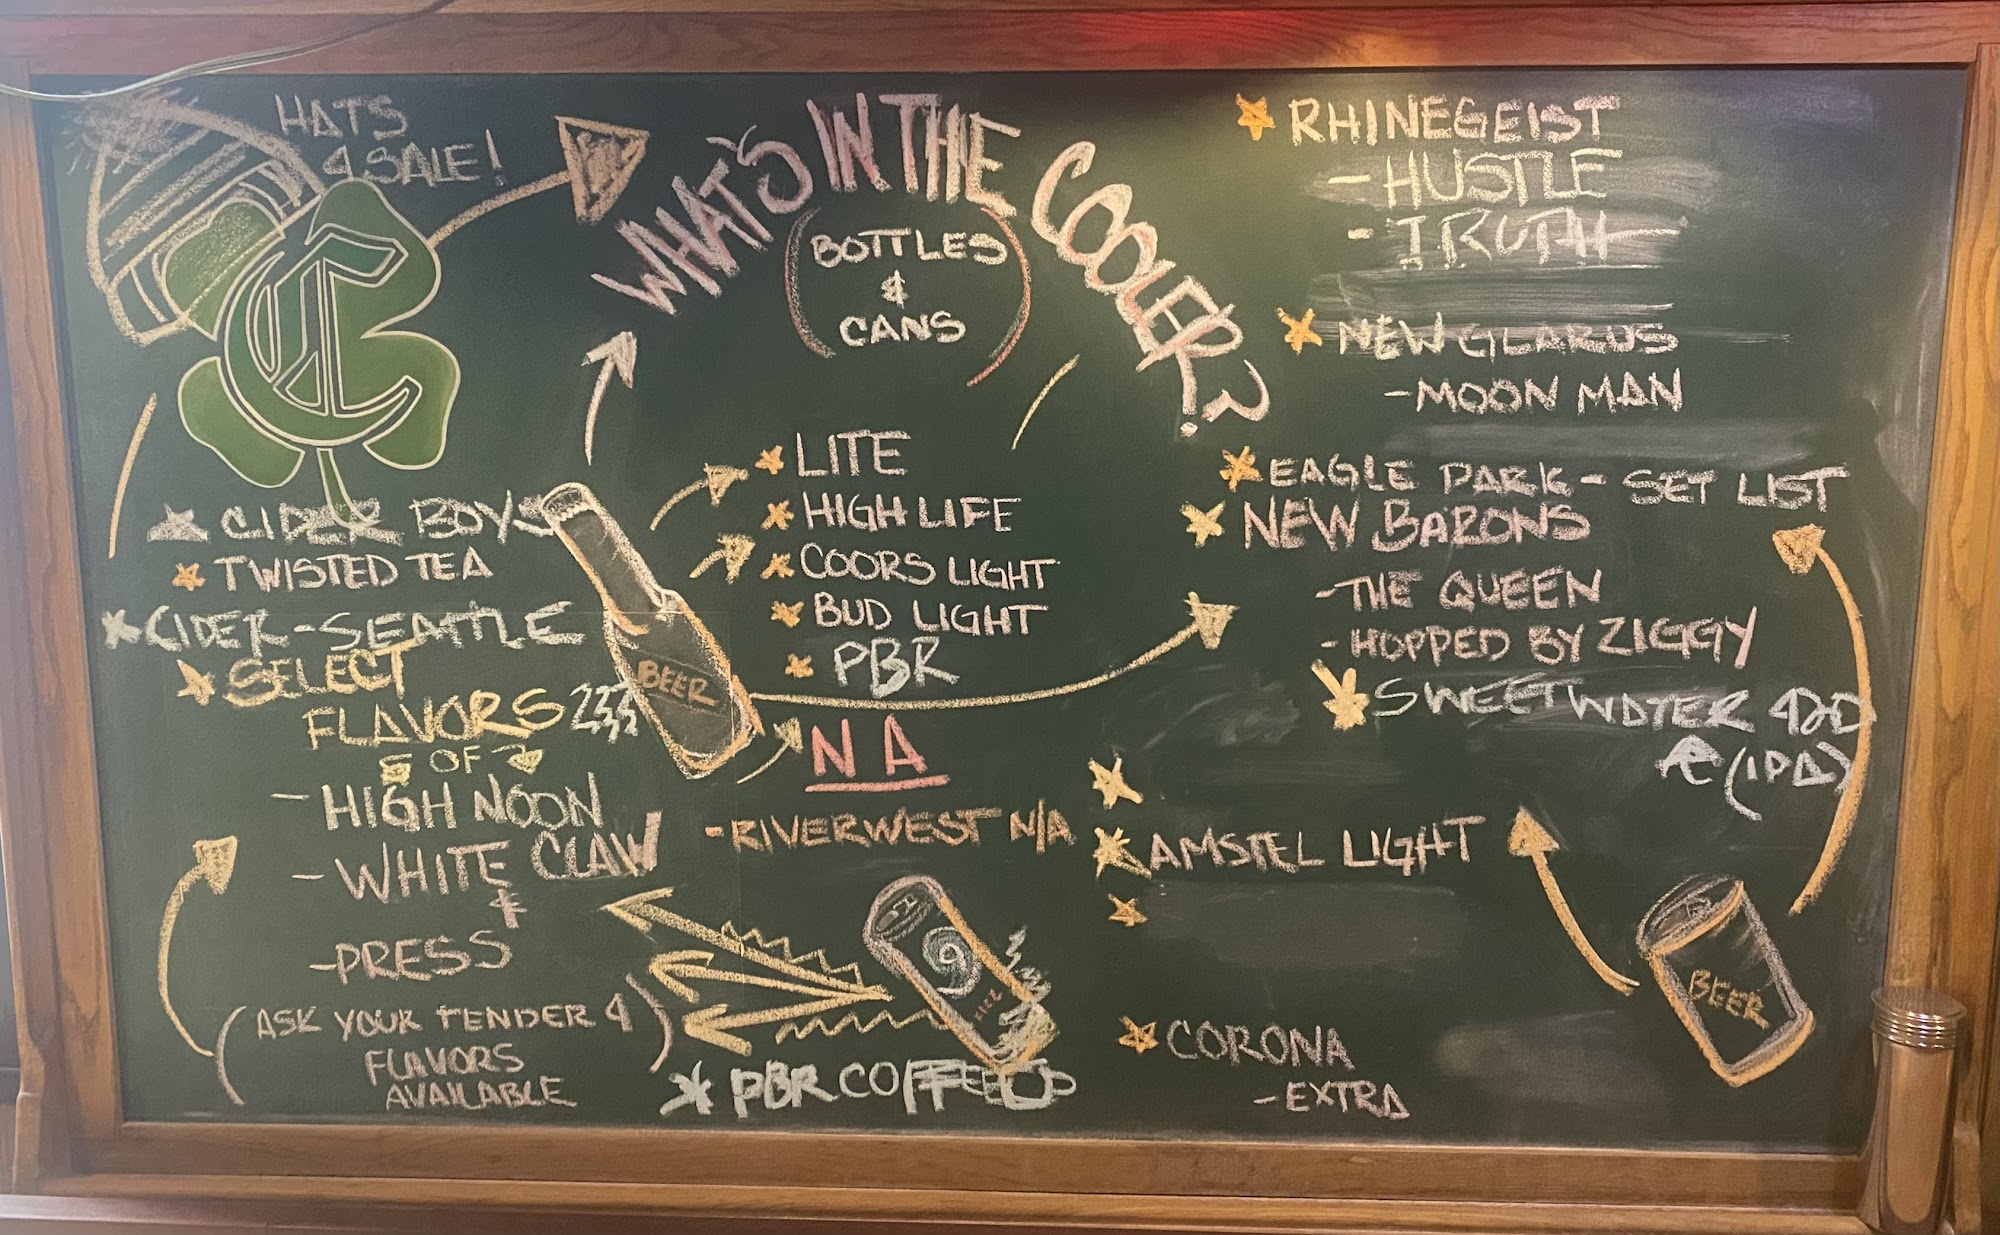 HATS
4 SALE!
WHAT'S IN THE COOLER?
(BOTTLES
&
CANS)
C
CIDER BOYS
TWISTED TEA
CIDER-SEATTLE
SELECT
FLAVORS
OF
- HIGH NOON
- WHITE CLAW
&
- PRESS
(ASK YOUR TENDER 4
FLAVORS
AVAILABLE)
BEER
LITE
HIGH LIFE
COORS LIGHT
BUD LIGHT
PBR
NA
- RIVERWEST N/A
9
PBR COFFEE
RHINEGEIST
- HUSTLE
- TRUTH
NEW GLARUS
- MOON MAN
EAGLE PARK - SET LIST
NEW BARONS
- THE QUEEN
- HOPPED BY ZIGGY
SWEETWATER 420
(IPA)
AMSTEL LIGHT
BEER
CORONA
- EXTRA